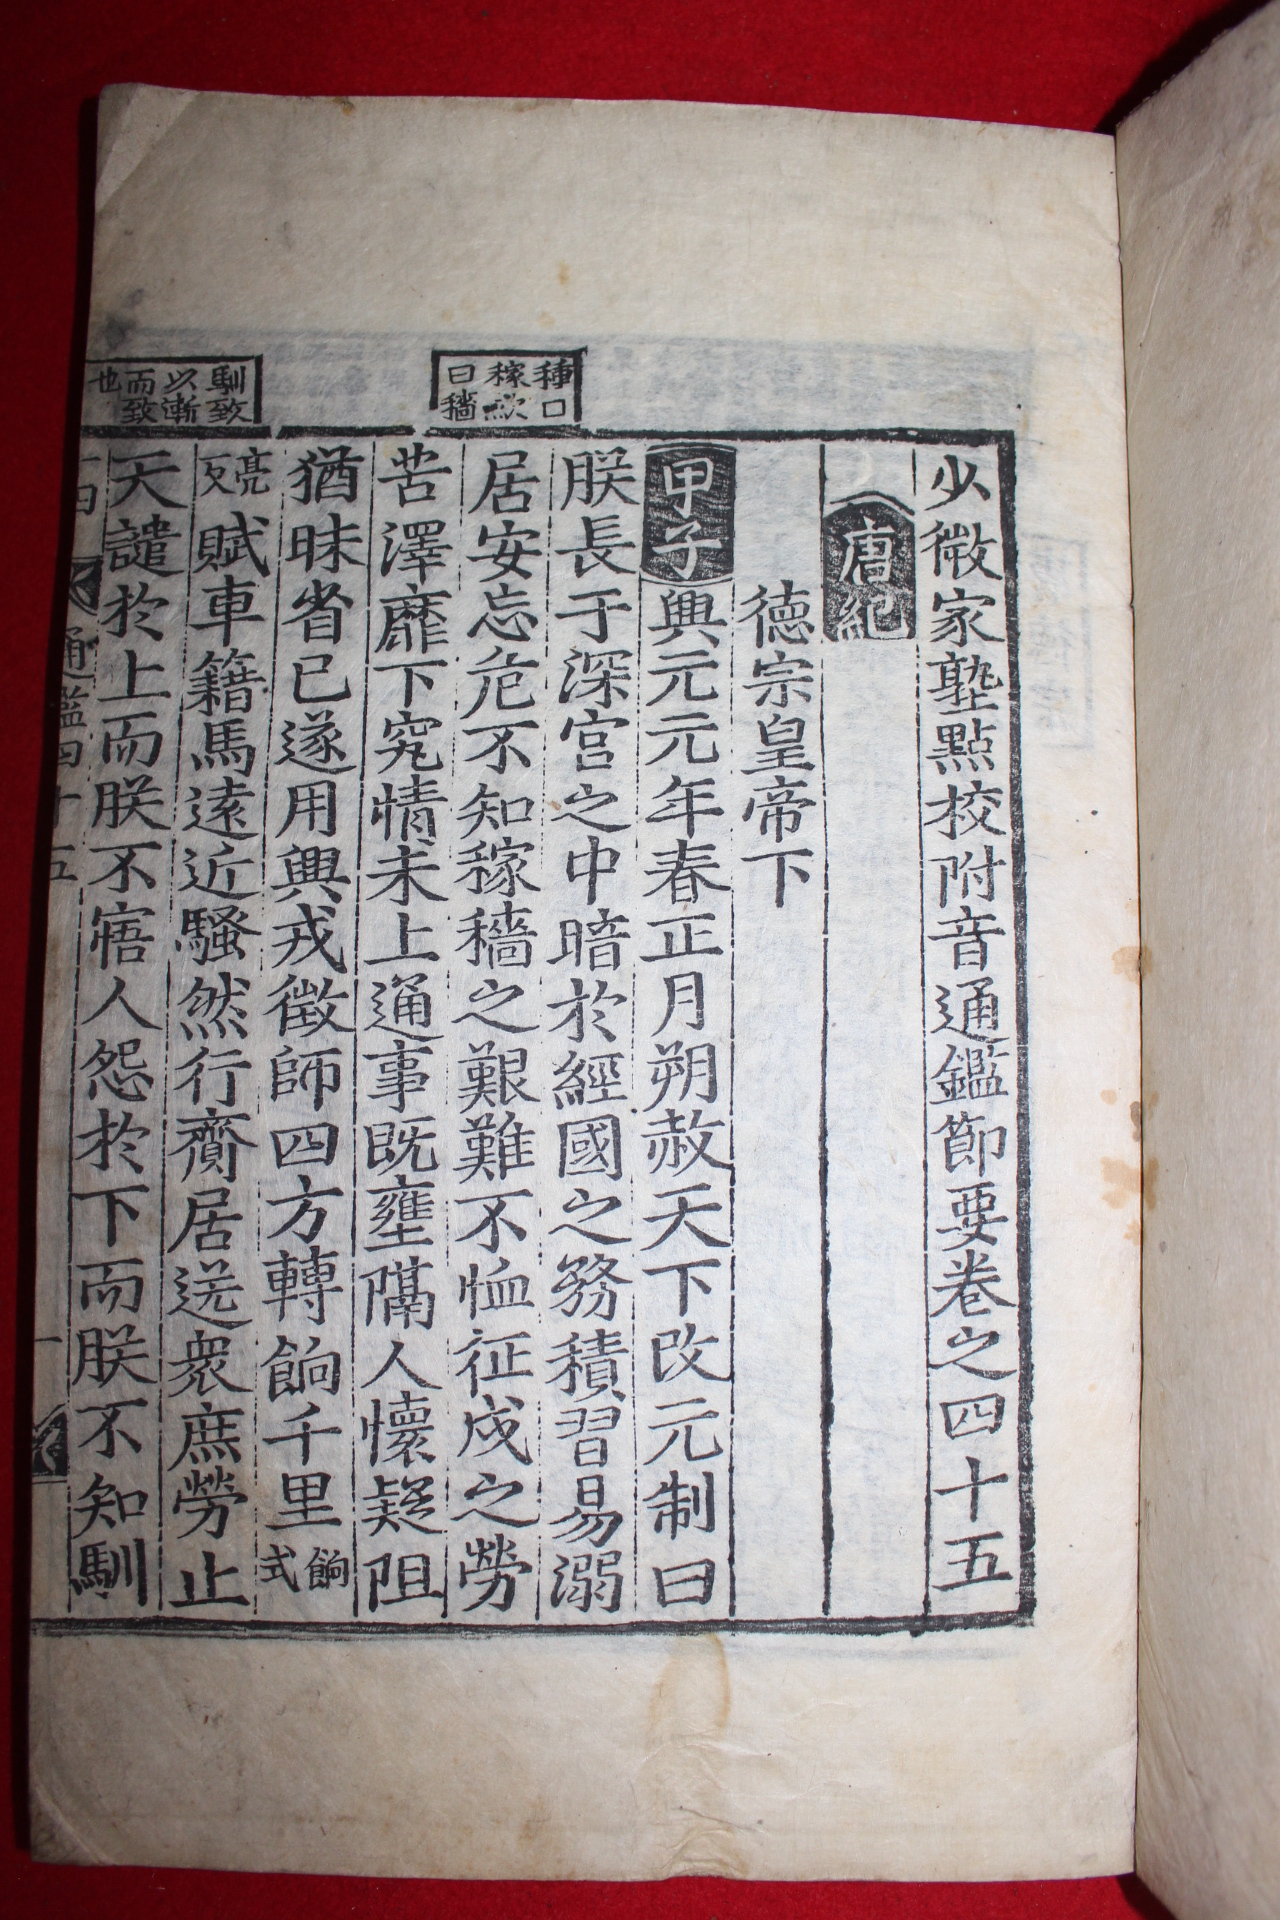 少微家塾點校附音通鑑節要卷之四十五
唐紀
德宗皇帝下
甲子興元元年春正月朔赦天下改元制曰
朕長于深宮之中暗於經國之務積習易溺
居安忘危不知稼穡之艱難不恤征戍之勞
苦澤靡下究情未上通事既壅隔人懷疑阻
猶昧省已遂用興戎徵師四方轉餉千里餉式
亮反賦車籍馬遠近騷然行齎居送衆庶勞止
天譴於上而朕不寤人怨於下而朕不知馴
種曰
稼斂
曰穡
馴致
以漸
而致
也
通鑑四十五
一